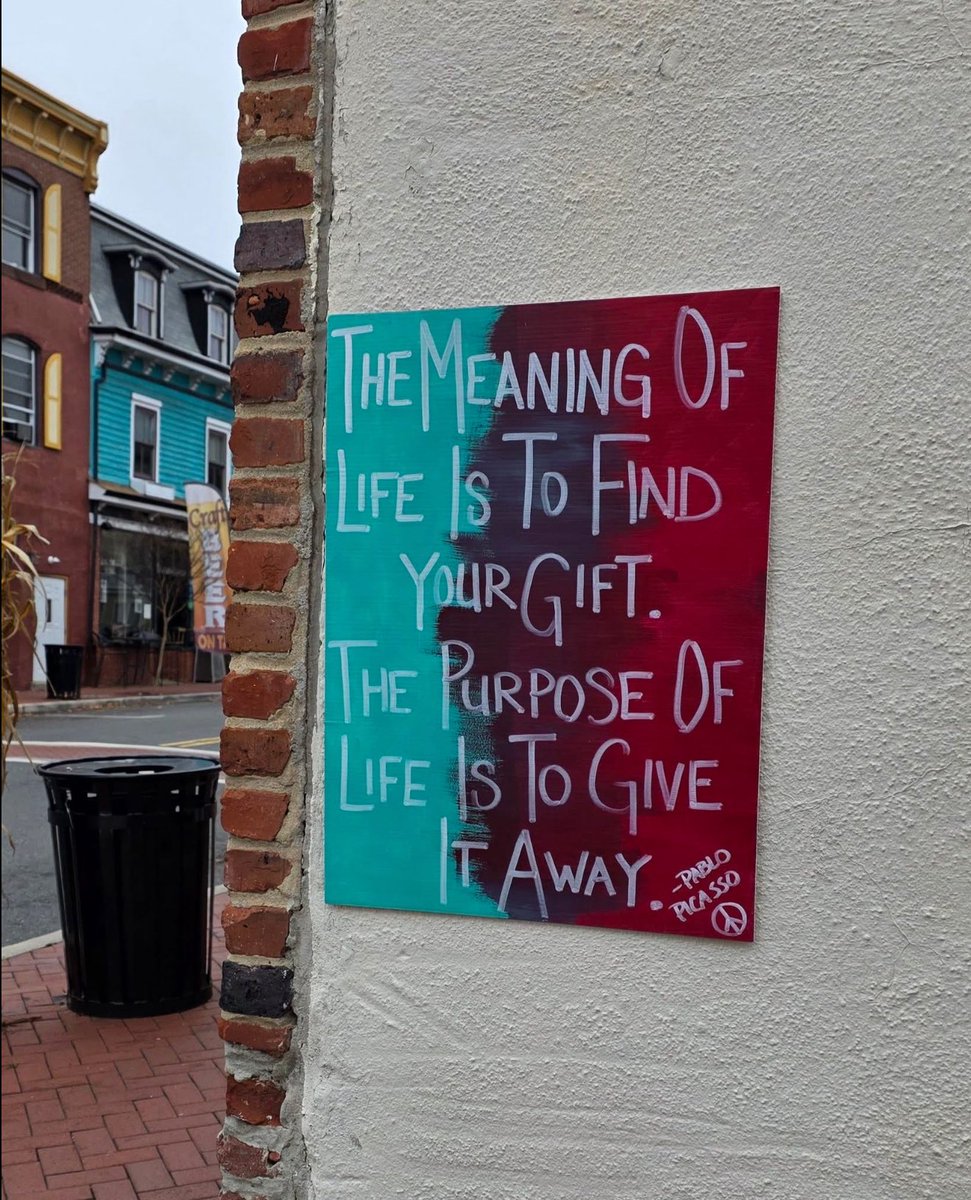 The Meaning Of
Life Is To Find
Your Gift.
The Purpose Of
Life Is To Give
It Away.
-PABLO
PICASSO
Craft
BEER